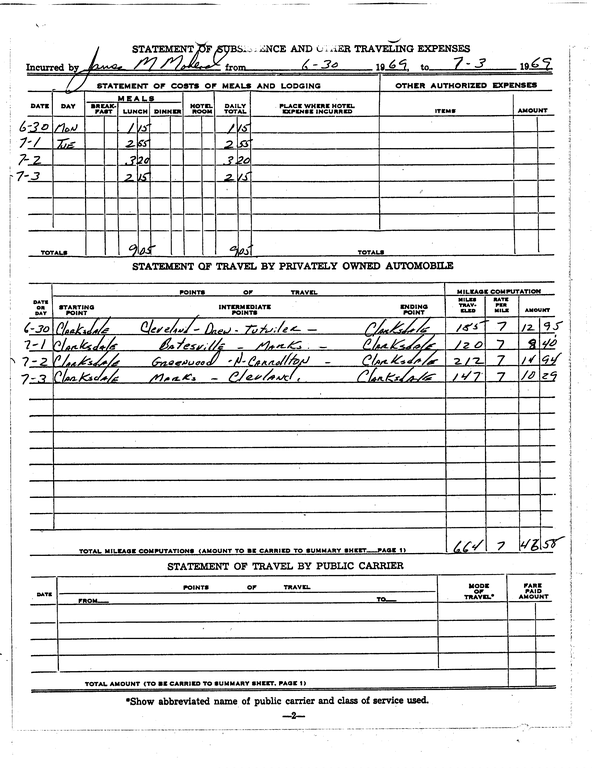 STATEMENT OF SUBSISTENCE AND OTHER TRAVELING EXPENSES
Incurred by M from 6-30 1969, to 7-3 1969
STATEMENT OF COSTS OF MEALS AND LODGING OTHER AUTHORIZED EXPENSES
DATE DAY MEALS BREAK-FAST LUNCH DINNER HOTEL ROOM DAILY TOTAL PLACE WHERE HOTEL EXPENSE INCURRED ITEMS AMOUNT
6-30 Mon 1 15 1 15
7-1 Tue 2 55 2 55
7-2 3 20 3 20
7-3 2 15 2 15
TOTALS 9 05 9 05 TOTALS
STATEMENT OF TRAVEL BY PRIVATELY OWNED AUTOMOBILE
POINTS OF TRAVEL MILEAGE COMPUTATION
DATE OR DAY STARTING POINT INTERMEDIATE POINTS ENDING POINT MILES TRAV-ELED RATE PER MILE AMOUNT
6-30 Clarksdale Cleveland - Drew - Tutwiler - Clarksdale 185 7 12 95
7-1 Clarksdale Batesville - Marks - Clarksdale 120 7 8 40
7-2 Clarksdale Greenwood - N-Carrollton - Clarksdale 212 7 14 94
7-3 Clarksdale Marks - Clevland. Clarksdale 147 7 10 29
TOTAL MILEAGE COMPUTATIONS (AMOUNT TO BE CARRIED TO SUMMARY SHEET PAGE 1) 664 7 58
STATEMENT OF TRAVEL BY PUBLIC CARRIER
DATE POINTS OF TRAVEL MODE OF TRAVEL* FARE PAID AMOUNT
FROM TO
TOTAL AMOUNT (TO BE CARRIED TO SUMMARY SHEET, PAGE 1)
*Show abbreviated name of public carrier and class of service used.
—2—